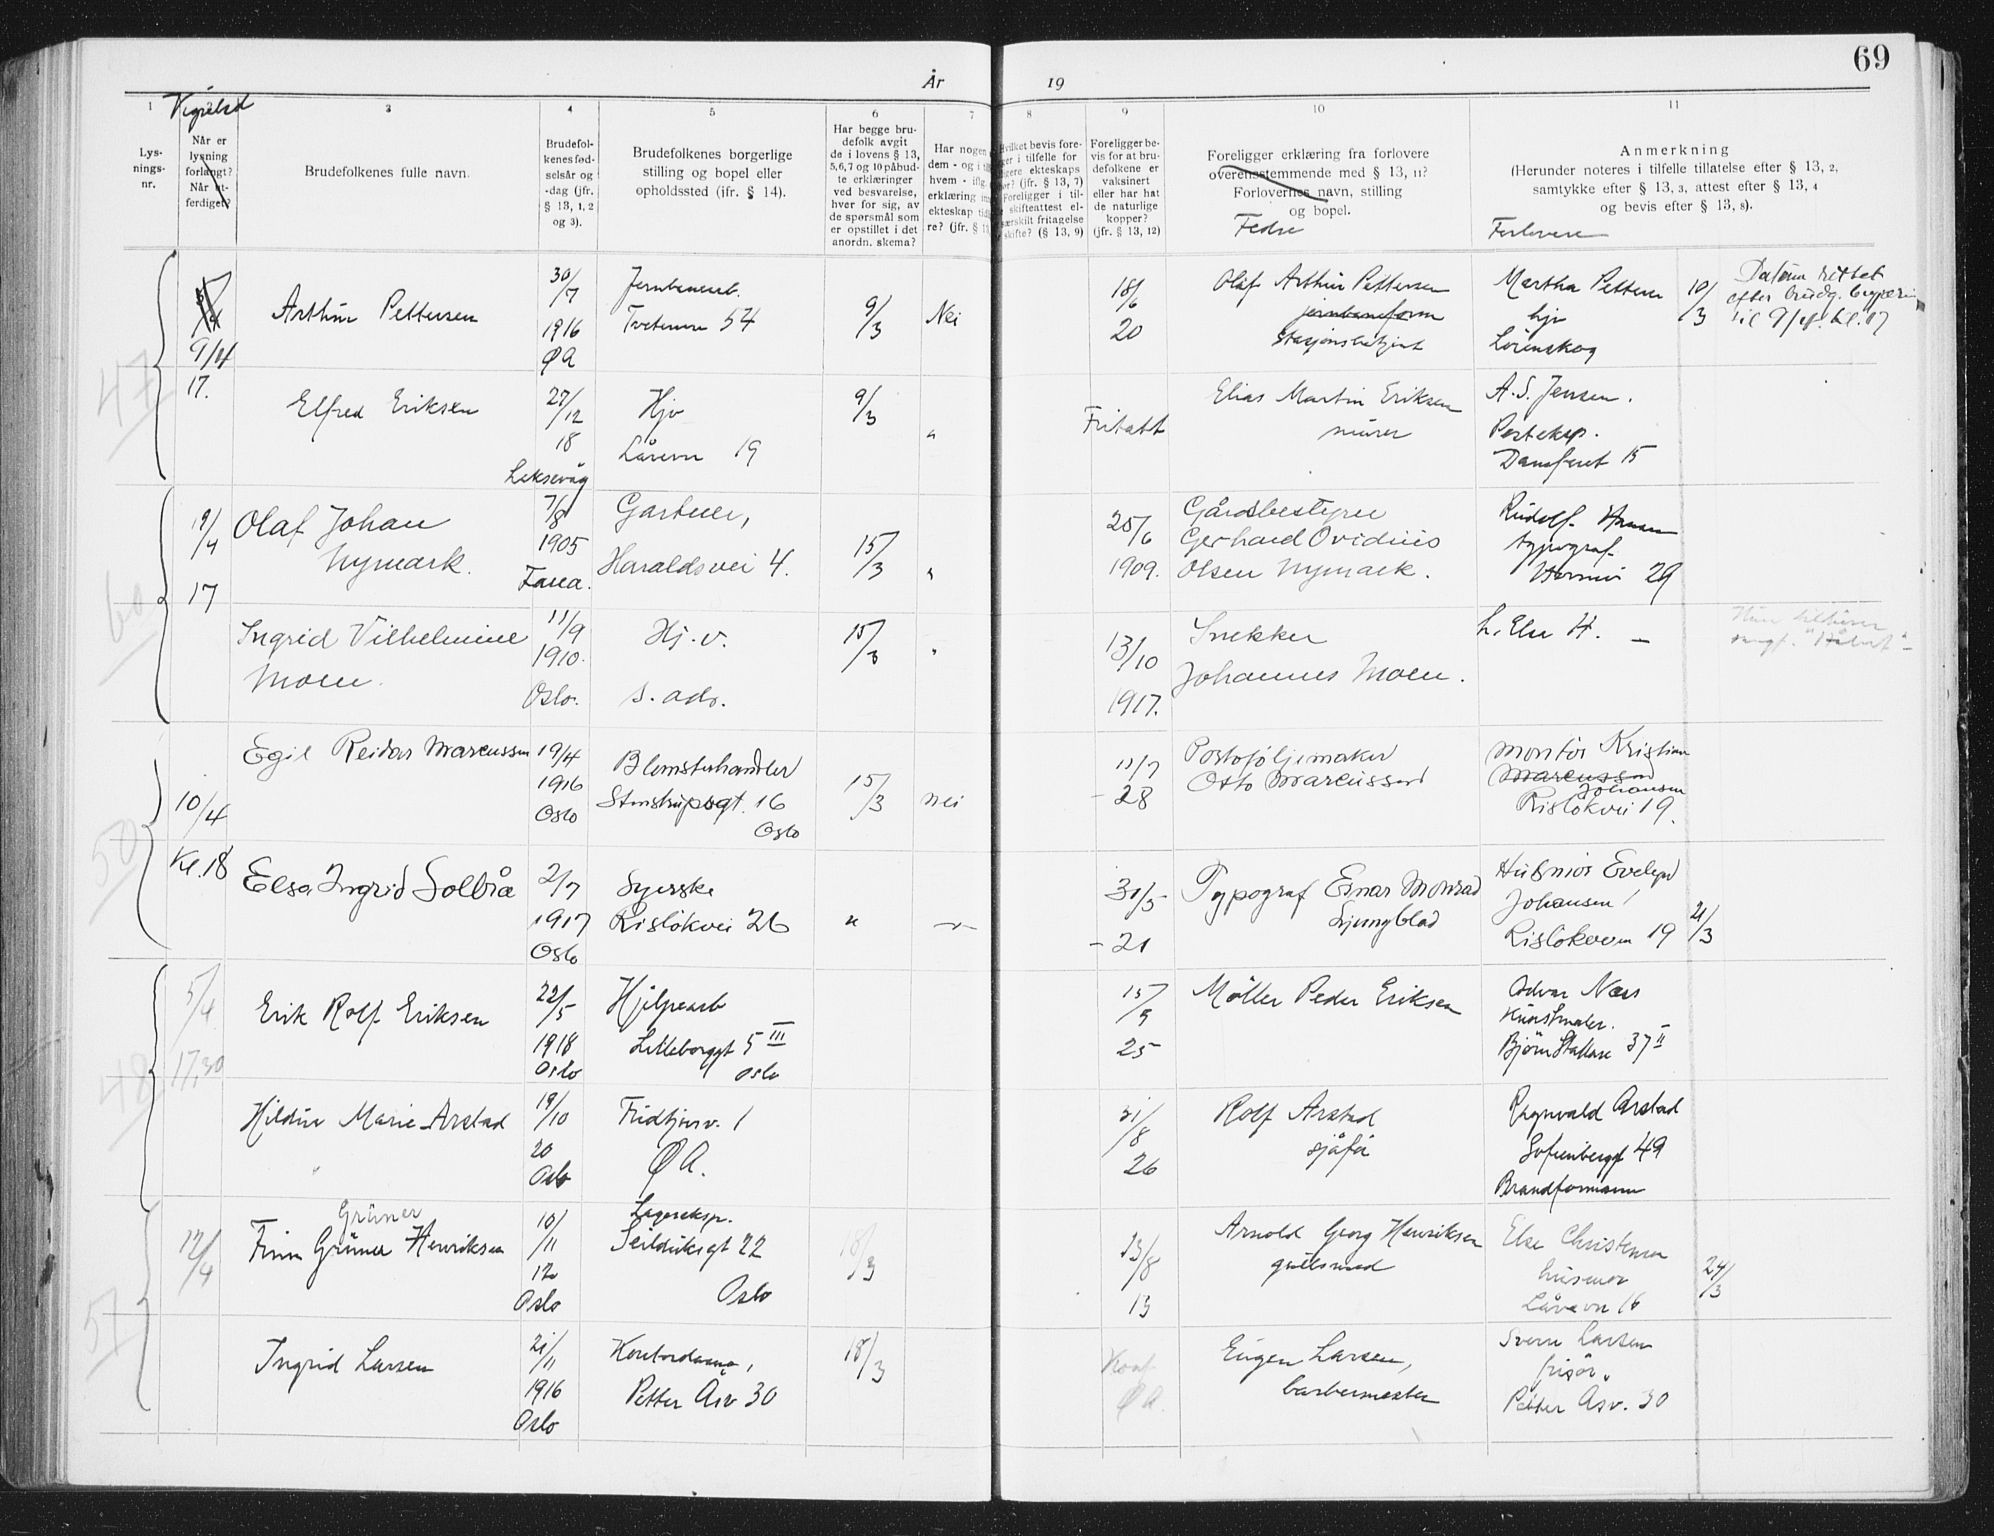 69
År 19
1
2
3
4
5
6
7
8
9
10
11
Vigselsd
Lys-
nings-
nr.
Når er
lysning
forlangt?
Når ut-
ferdiget?
Brudefolkenes fulle navn.
Brudefol-
kenes fød-
selsår og
-dag (jfr.
§ 13, 1, 2
og 3).
Brudefolkenes borgerlige
stilling og bopel eller
opholdssted (ifr. § 14).
Har begge bru-
defolk avgit
de i lovens § 13,
5,6,7 og 10 påbud-
te erklæringer
ved besvarelse,
hver for sig, av
de spørsmål som
er opstillet i det
anordn. skema?
Har nogen
dem - og i
hvem - iflg.
erklæring
ekteskap
re? (jfr. § 1
bevis fore-
i tilfelle for
ekteskaps
? (jfr. § 13, 7)
Foreligger i til-
skifteattest el-
særskilt fritagelse
skifte? (§ 13, 9)
Foreligger be-
vis for at bru-
defolkene er
vaksinert
eller har hat
de naturlige
kopper?
(jfr. § 13, 12)
Foreligger erklæring fra forlovere
overensstemmende med § 13, 11?
Forlovernes navn, stilling
og bopel.
Fedre
Anmerkning
(Herunder noteres i tilfelle tillatelse efter § 13, 2,
samtykke efter § 13, 3, attest efter § 13, 4
og bevis efter § 13, 8).
Forlovere
47
9/4
17.
Arthur Pettersen
30/7
1916
ØA
Jernbanearb.
Tvetenvn 54
9/3
Nei
18/6
20
Olaf Arthur Pettersen
stasjonsbetjent
Martha Pettersen
hjv
Lörenskog
10/3
Datum rettet
efter brudg. begjæring
til 9/4. kl. 17
Elfred Eriksen
27/12
18
Leksevåg
Hjv
Låvevn 19
9/3
"
Fritatt
Elias Martin Eriksen
murer
A. S. Jensen.
Posteksp.
15
60
19/4
17
Olaf Johan
Nymark.
7/8
1905
Gartner,
Haraldsvei 4.
15/3
"
25/6
1909.
Gårdsbestyrer
Gerhard Ovidius
Olsen Nymark.
Rudolf
typograf
29
Ingrid Vilhelmine
Moen.
11/9
1910.
Oslo.
Hj. v.
s. ads.
15/3
"
13/10
1917.
Snekker
Johannes Moen.
h. Else H. —
50
10/4
Kl. 18
Egil Reidar Marcussen
19/4
1916
Oslo
Blomsterhandler
Stenstrupsgt. 16
Oslo
15/3
Nei
11/7
- 28
Portoføljemaker
Otto Marcussen
Montör Kristian
Marcussen
Johansen
Rislökvei 19.
Elsa Ingrid Solbrå
2/7
1917
Oslo
Syerske
Rislökvei 26
"
31/5
- 21
Typograf Einar Monrad
Ljungblad
Husmor Evelyn
Johansen
Rislökveien 19
21/3
48
5/4
17,30
Erik Rolf Eriksen
22/5
1918
Oslo
Hjelpearb
Lilleborggt 5 III
Oslo
15/9
25
Möller Peder Eriksen
Odvar Næss
Kunstmaler.
Björn Stallare 37 II
Hildur Marie Arstad
19/10
20
Oslo
Fridtjovsv. 1
ØA.
31/8
26
Rolf Arstad
sjåför
Ragnvald Arstad
Sofienberggt 49
Brandformann
57
12/4
Grüner
Finn Grüner Henriksen
10/11
12
Oslo
Lagereksp.
Seilduksgt 22
Oslo
18/3
13/8
13
Arnold Georg Henriksen
gullsmed
Else Christensen
husmor
Låvevn 16
24/3
Ingrid Larsen
21/11
1916
Oslo
Kontordame,
Petter Åsv 30
18/3
Konf
ØA.
Eugen Larsen,
barbermester
Sverre Larsen
frisör,
Petter Åsv. 30